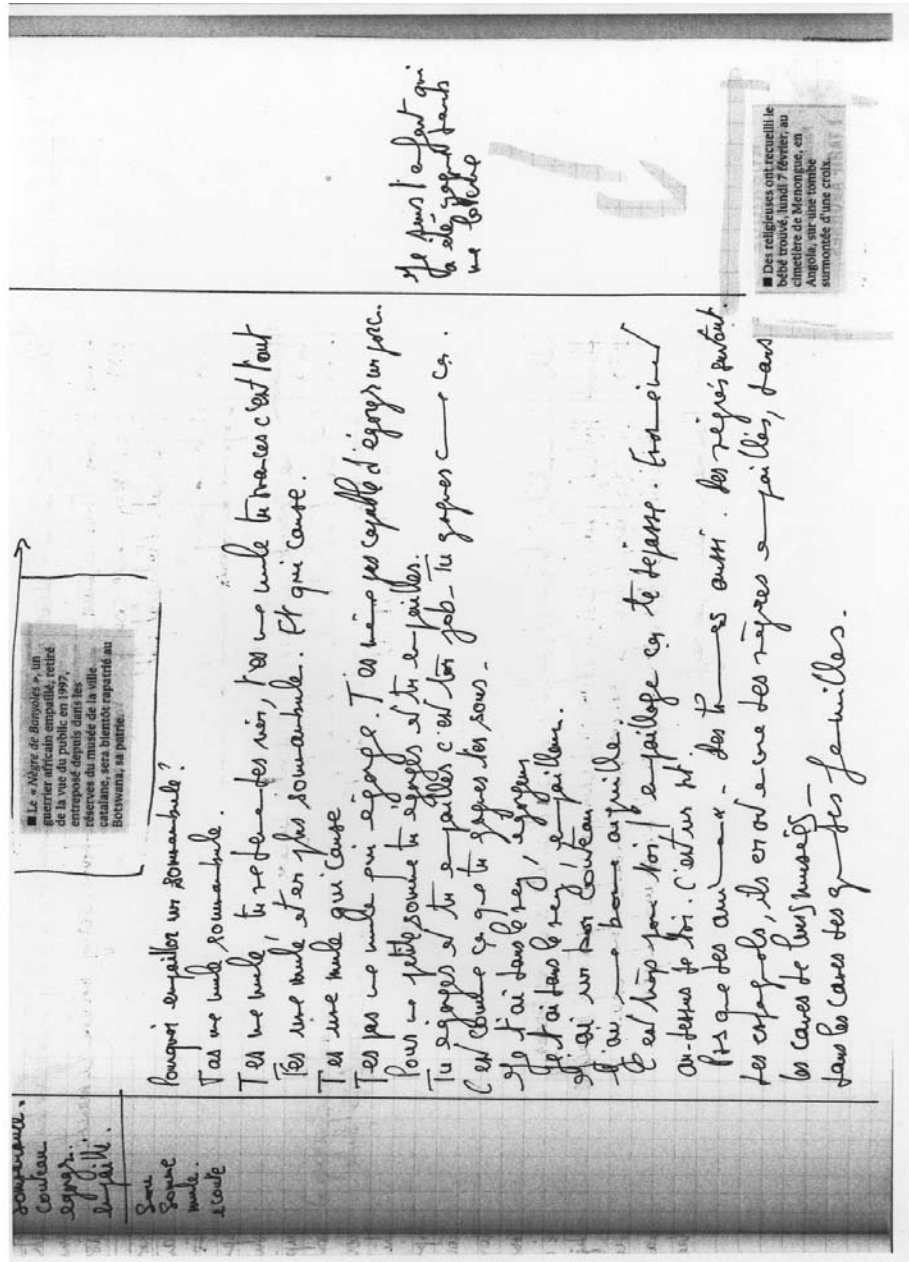 somnambule.
couteau
égorger.
empaill.
Sou
Somme
mule.
écoute
■ Le « Nègre de Banyoles », un
guerrier africain empaillé, retiré
de la vue du public en 1997,
entreposé depuis dans les
réserves du musée de la ville
catalane, sera bientôt rapatrié au
Botswana, sa patrie.
Pourquoi empailler un somnambule ?
T'as une mule somnambule.
T'es une mule, tu redemandes rien, t'as une mule tu avances c'est tout
T'es une mule et en plus somnambule. Et qui cause.
T'es une mule qui cause
T'es pas une mule qui égorge. T'es même pas capable d'égorger un porc.
Pour une petite somme tu égorges et tu empailles.
Tu égorges et tu empailles c'est ton job – Tu gagnes comme ça.
C'est comme ça que tu gagnes des sous –
Je t'ai dans le nez, égorgeur
Je t'ai dans le nez, empailleur.
J'ai un bon couteau
J'ai une bonne aiguille.
C'est trop pour toi l'empaillage ça te dépasse.
au-dessus de toi. C'est un art
Pas que des animaux – Des hommes aussi. Des nègres surtout.
Les espagnols, ils ont encore des nègres empaillés, dans
les caves de leurs musées –
dans les caves des grandes familles.
Je suis l'enfant qui
a été gagné dans
une
■ Des religieuses ont recueilli le
bébé trouvé, lundi 7 février, au
cimetière de Menongue, en
Angola, sur une tombe
surmontée d'une croix.